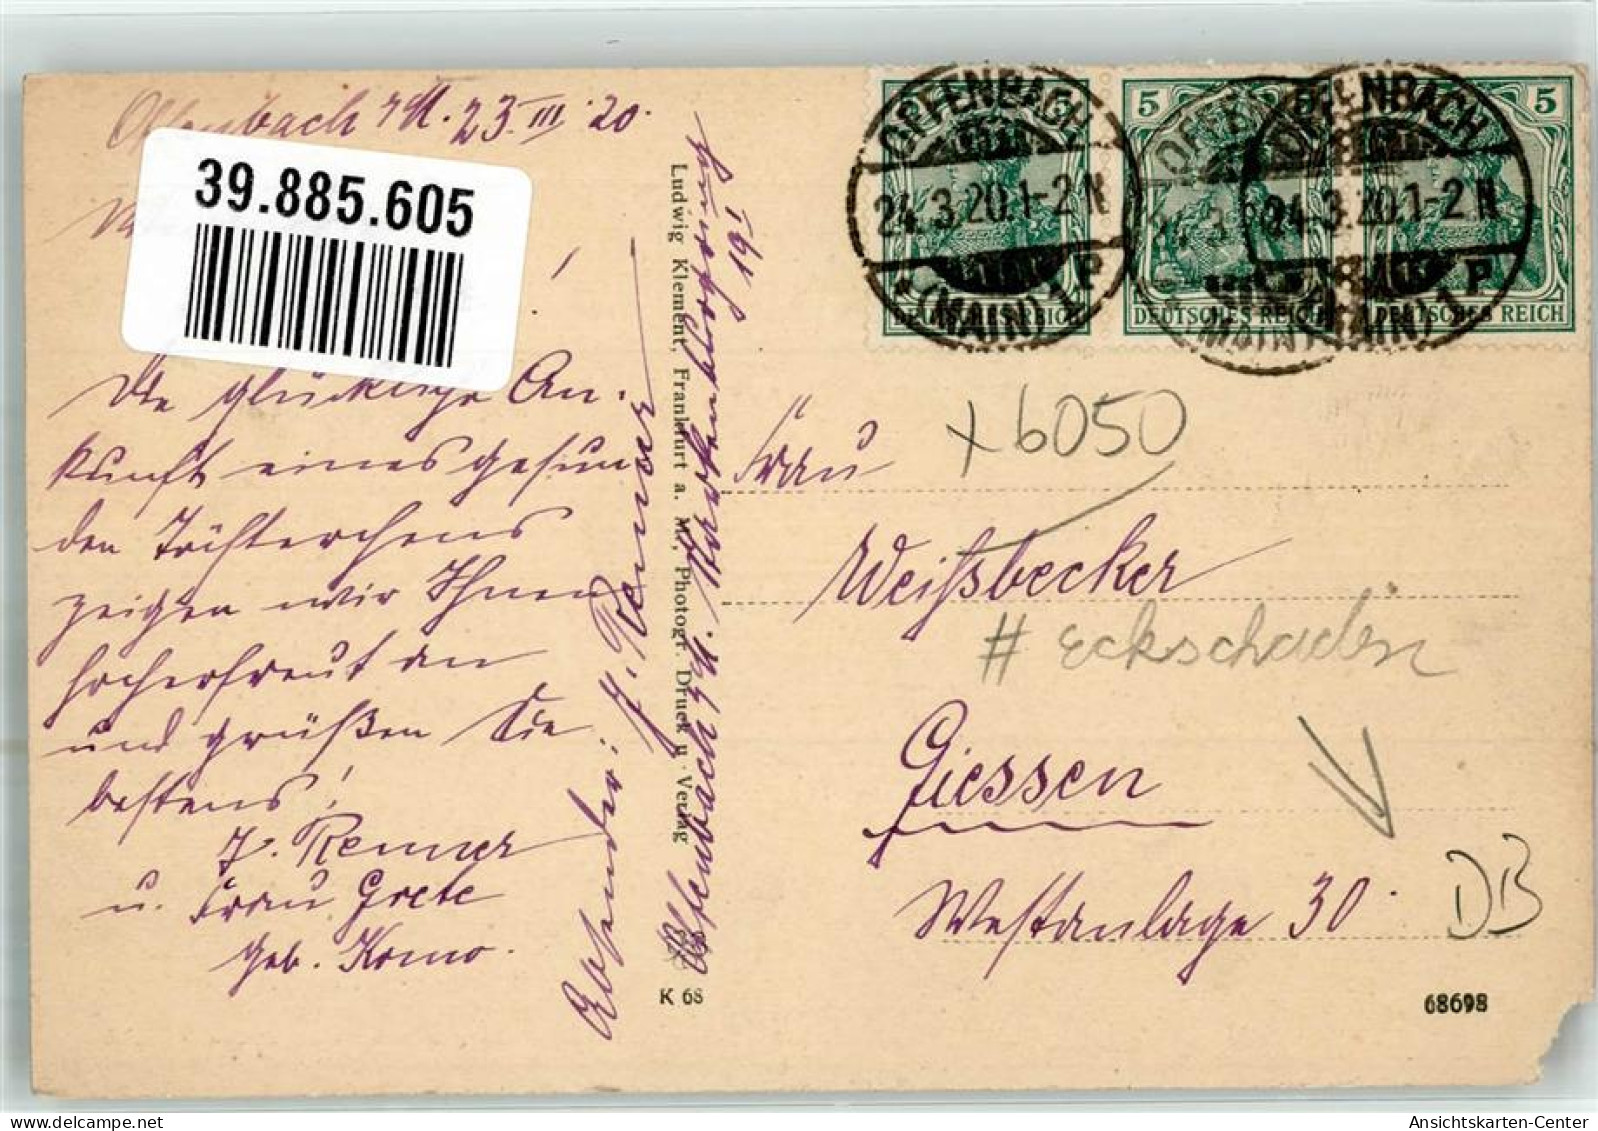 Offenbach a/M. 23.III.20.
39.885.605
Die glückliche An-
kunft eines gesun-
den Töchterchens
zeigen wir Ihnen
hocherfreut an
und grüßen Sie
bestens!
J. Renner
u. Frau Grete
geb. Komo.
Absender: J. Renner
Offenbach a/M.
19 I
Ludwig Klement, Frankfurt a. M., Photogr. Druck u. Verlag
K 68
5
5
5
DEUTSCHES REICH
DEUTSCHES REICH
DEUTSCHES REICH
OFFENBACH
24.3.20.1-2N
(MAIN) 1 P
OFFENBACH
24.3.20.1-2N
(MAIN) 1 P
x 6050
Frau
Weißbecker
# Eckschaden
Giessen
Westanlage 30
DB
68698
Ansichtskarten-Center